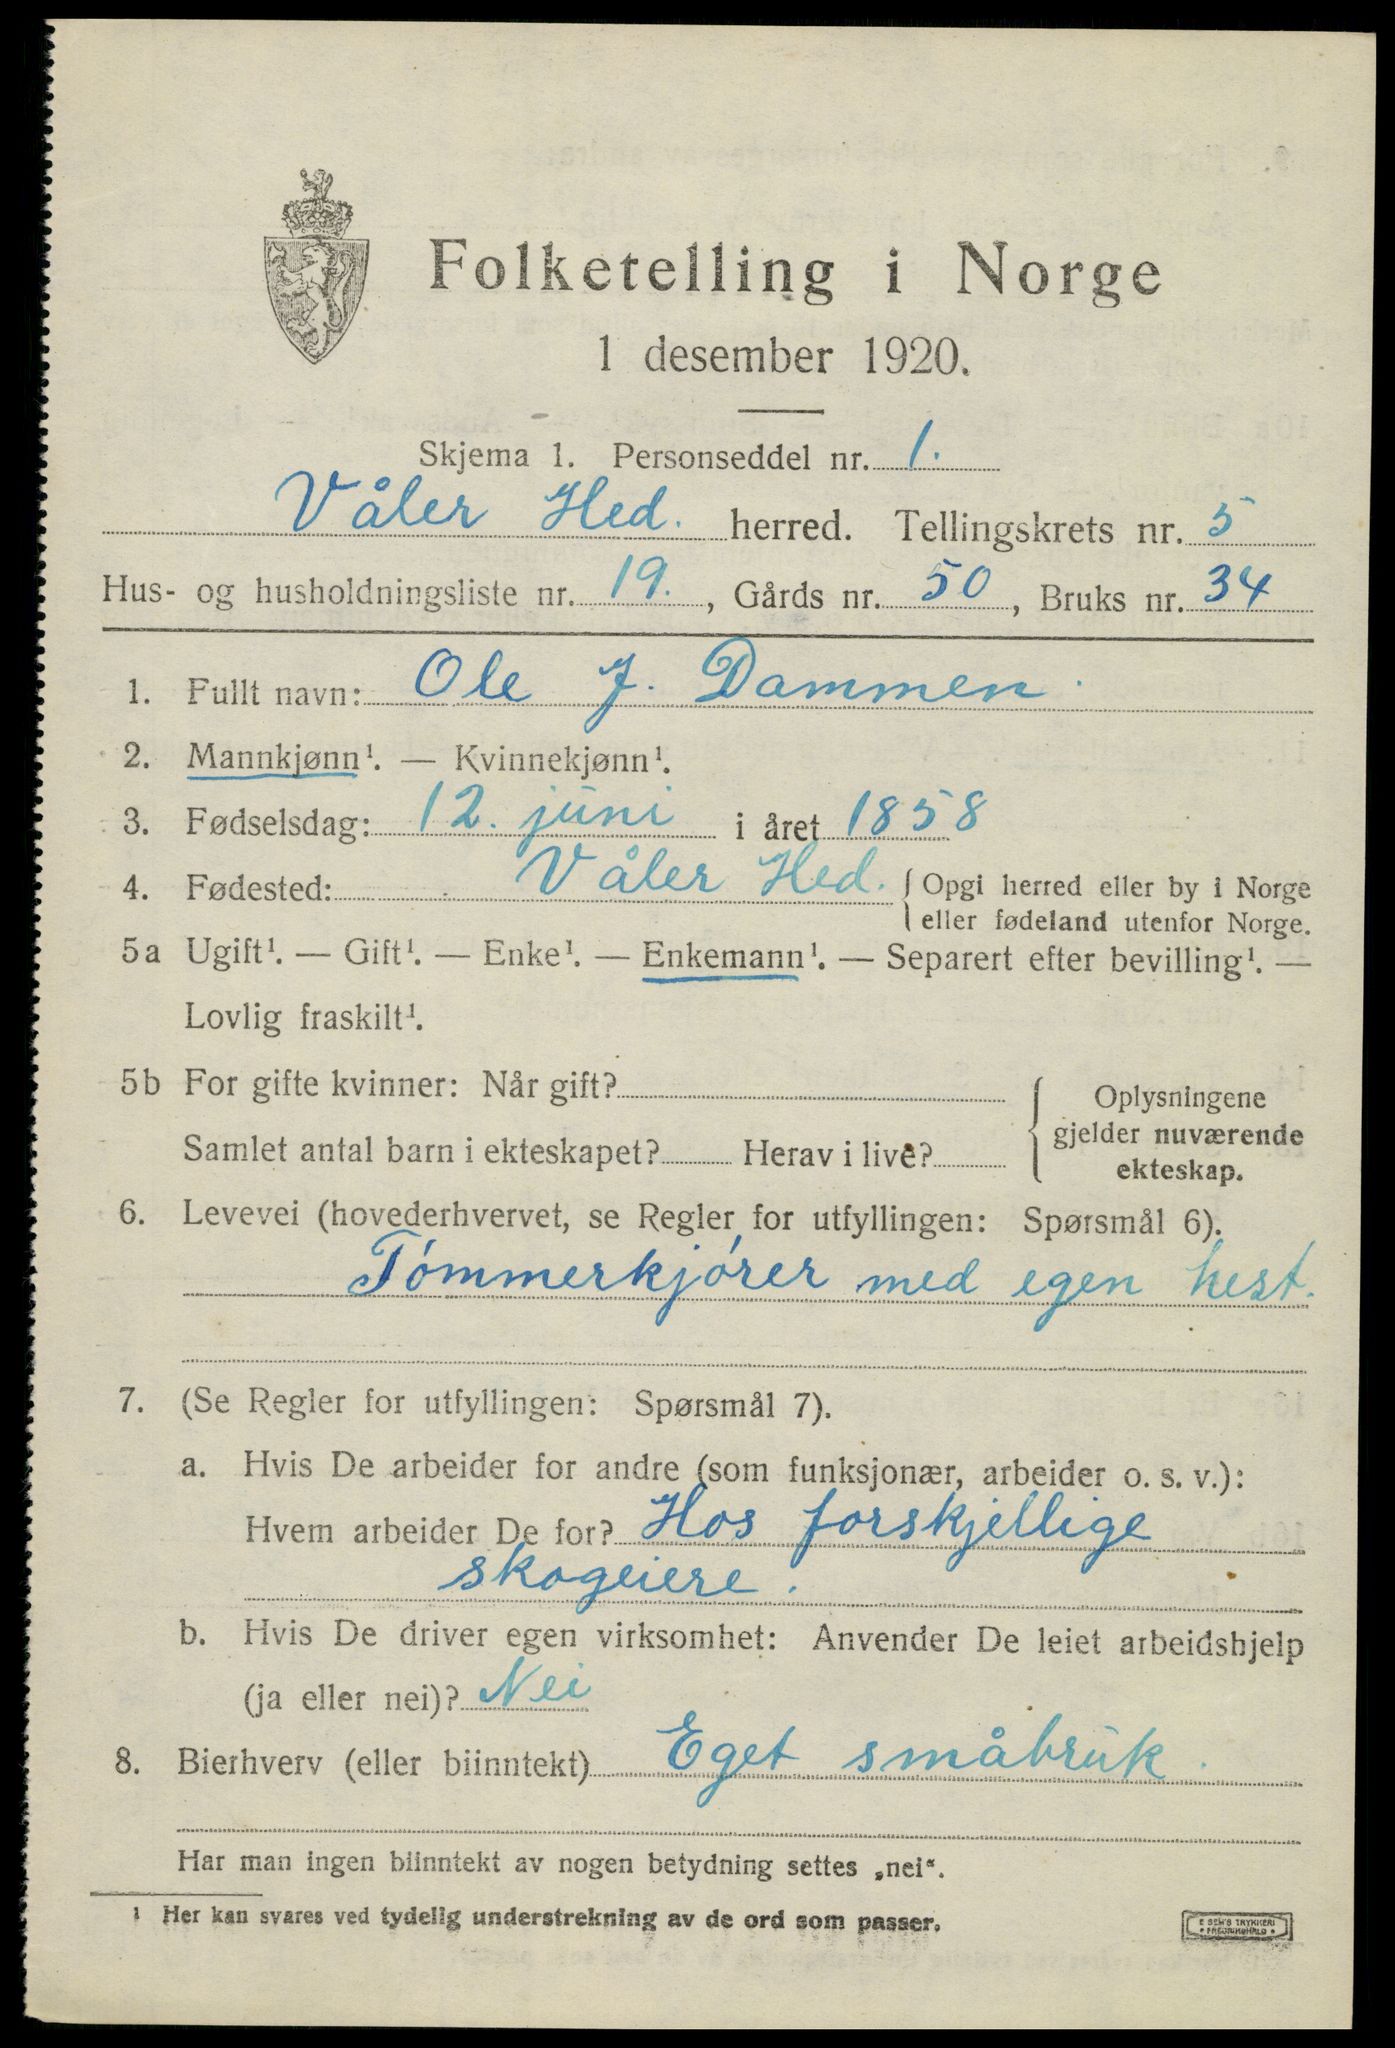 Folketelling i Norge
1 desember 1920.
Skjema 1. Personseddel nr. 1.
Våler Hed. herred. Tellingskrets nr. 5
Hus- og husholdningsliste nr. 19., Gårds nr. 50, Bruks nr. 34
1. Fullt navn: Ole J. Dammen.
2. Mannkjønn¹. — Kvinnekjønn¹.
3. Fødselsdag: 12. juni i året 1858
4. Fødested: Våler Hed. { Opgi herred eller by i Norge
eller fødeland utenfor Norge.
5a Ugift¹. — Gift¹. — Enke¹. — Enkemann¹. — Separert efter bevilling¹. —
Lovlig fraskilt¹.
5b For gifte kvinner: Når gift?
Samlet antal barn i ekteskapet? Herav i live?
{ Oplysningene
gjelder nuværende
ekteskap.
6. Levevei (hovederhvervet, se Regler for utfyllingen: Spørsmål 6).
Tómmerkjórer med egen hest.
7. (Se Regler for utfyllingen: Spørsmål 7).
a. Hvis De arbeider for andre (som funksjonær, arbeider o. s. v.):
Hvem arbeider De for? Hos forskjellige
skogeiere.
b. Hvis De driver egen virksomhet: Anvender De leiet arbeidshjelp
(ja eller nei)? Nei
8. Bierhverv (eller biinntekt) Eget småbruk.
Har man ingen biinntekt av nogen betydning settes „nei“.
¹ Her kan svares ved tydelig understrekning av de ord som passer.
E SEM'S TRYKKERI
• FREDRIKSHALD •